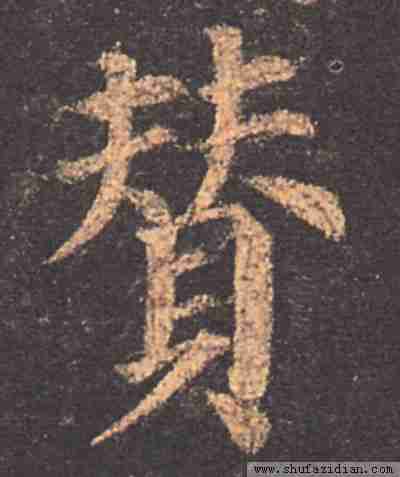 賛
www.shufazidian.com